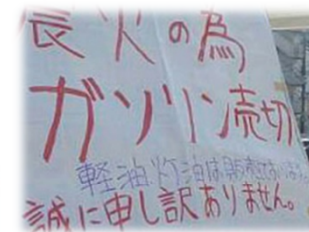 震災の為
ガソリン売切
軽油灯油は販売しております
誠に申し訳ありません。